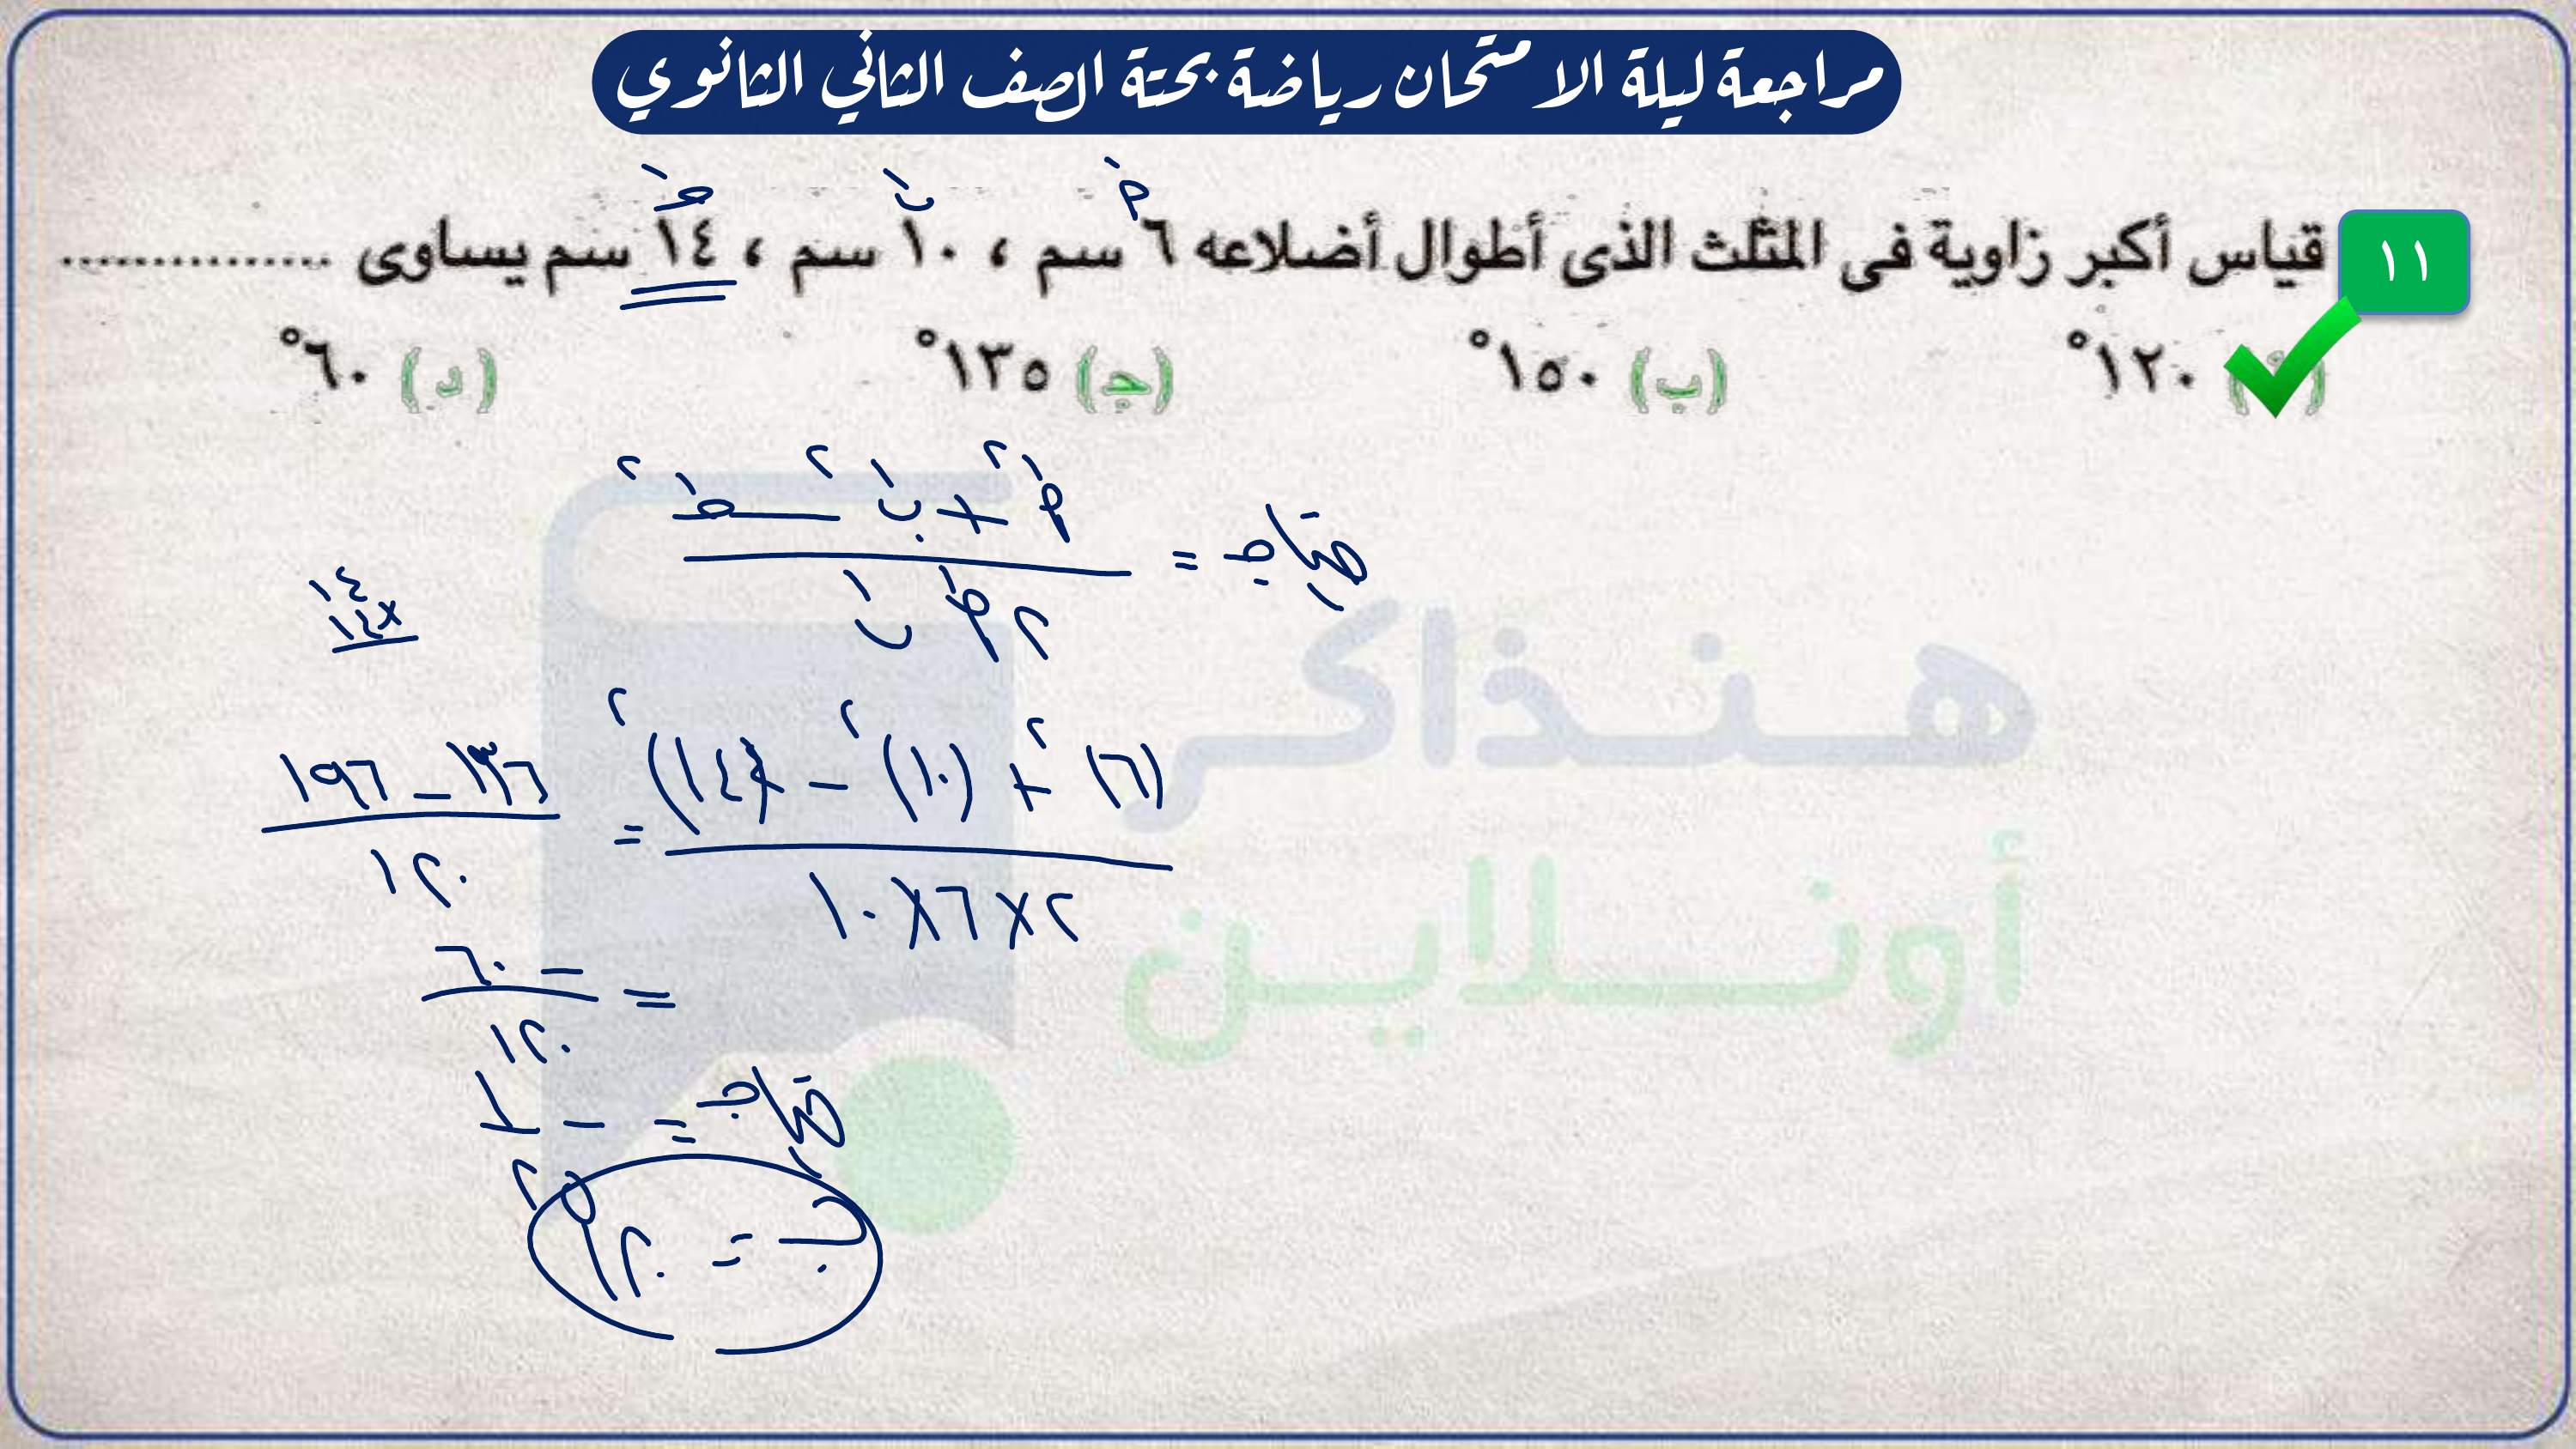 مراجعة ليلة الامتحان رياضة بحتة الصف الثاني الثانوي
أَ بَ جَ
١١ قياس أكبر زاوية فى المثلث الذى أطوال أضلاعه ٦ سم ، ١٠ سم ، ١٤ سم يساوى ...............
١٢٠° (ب) ١٥٠° (جـ) ١٣٥° (د) ٦٠°
حتاجـ = (أَ٢ + بَ٢ − جَ٢) / (٢ أَ بَ)
١٤
× ١٤
((٦)٢ + (١٠)٢ − (١٤)٢) / (٢ × ٦ × ١٠) = (١٣٦ − ١٩٦) / ١٢٠
= − ٦٠ / ١٢٠
حتاجـ = − ١ / ٢
جـ = ١٢٠°
هنذاكر
أونلاين